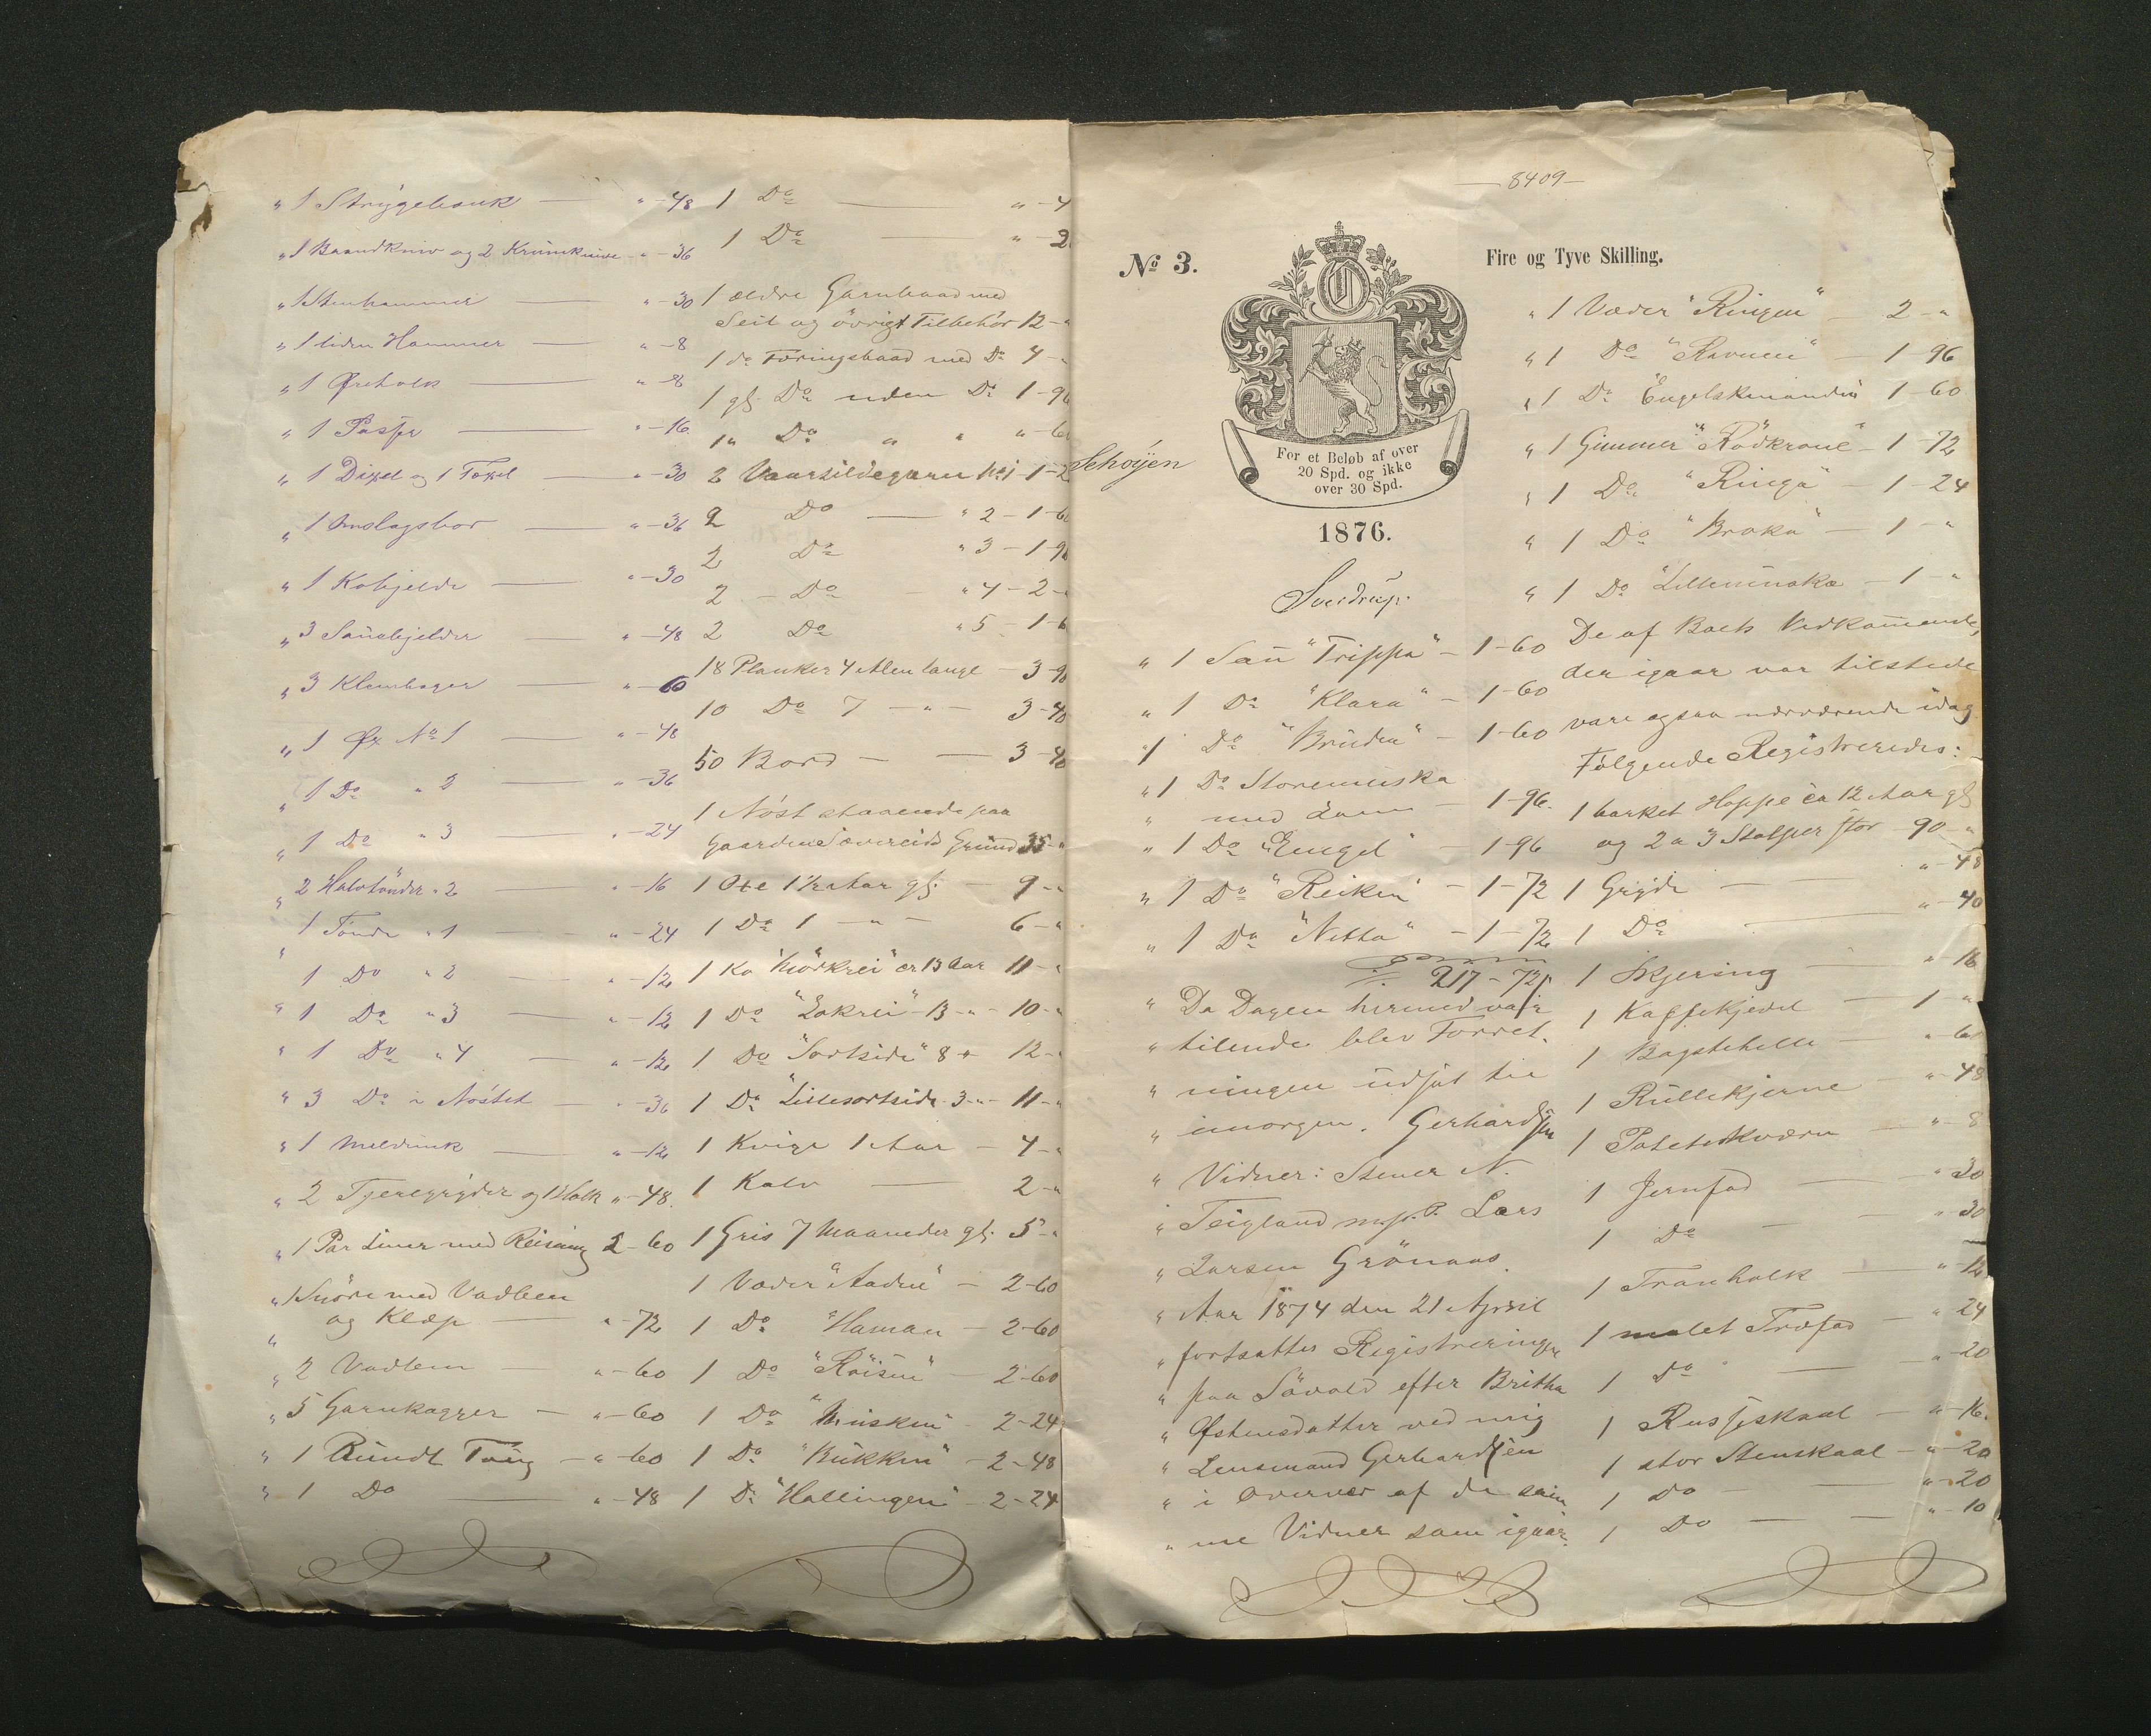 " 1 Strygebænk — " - 48
" 1 Baandkniv og 2 Krumknive " - 36
" 1 Stenhammer — " - 30
" 1 liden Hammer — " - 8
" 1 Øreholk — " - 8
" 1 Passer — " - 16
" 1 Dixel og 1 Texel — " - 30
" 1 Omslagsbor — " - 36
" 1 Kobjelde — " - 30
" 3 Saubjelder — " - 48
" 3 Klembager — " - 60
" 1 Øx No 1 — " - 48
" 1 Do " 2 — " - 36
" 1 Do " 3 — " - 24
" 2 Halvtönder " 2 — " - 16
" 1 Tönde " 1 — " - 24
" 1 Do " 2 — " - 12
" 1 Do " 3 — " - 12
" 1 Do " 4 — " - 12
" 3 Do i Nöstet — " - 36
" 1 Meldunk — " - 12
" 2 Tjeregryder og 1 Holk " - 48.
" 1 Par Liner med Reisning 2 - 60
" 1 Snöre med Vadbeen
" og Klæp — " - 72
" 2 Vadbeen — " - 60
" 5 Garnkagger — " - 60
" 1 Rundt Toug — " - 60
" 1 Do — " - 48
1 Do — " - 4
1 Do — " - 2
1 ældre Garnbaad med
Seil og övrigt Tilbehör 12 - "
1 do Föringsbaad med Do 4 - "
1 gl. Do uden Do 1 - 96
1 " Do " " " - 60
2 Vaarsildegarn No 1 - 1 - 2
2 Do — " 2 - 1 - 60
2 Do " 3 - 1 - 96
2 - Do " 4 - 2 - "
2 Do " 5 - 1 - 6
18 Planker 4 Alen lange - 3 - 90
10 Do 7 - " - 3 - 40
50 Bord — — 3 - 40
1 Nöst staaende paa
Gaarden Sævereids Grund 35 - "
1 Oxe 1 1/2 Aar gl. — 9 - "
1 Do 1 - " - 6 - "
1 Ko "Mörkrei" ca 13 Aar 11 - "
1 Do "Lokrei" - 13 - " - 10 - "
1 Do "Sortside" 8 " 12 - "
1 Do "Lillesortside 3 - " - 11 - "
1 Kvige 1 Aar — 4 - "
1 Kalv — 2 - "
1 Gris 7 Maaneder gl. 5 - "
1 Væder "Aaden" — 2 - 60
1 Do "Haman — 2 - 60
1 Do "Röisen" — 2 - 60
1 Do "Musken" - 2 - 24
1 Do "Bukken" - 2 - 48
1 Do "Hallingen" - 2 - 24
— 8409 —
No 3.
Fire og Tyve Skilling.
O
For et Beløb af over
20 Spd. og ikke
over 30 Spd.
Schöyen
1876.
Sverdrup.
" 1 Sau "Trippa" - 1 - 60
" 1 Do "Klara" - 1 - 60
" 1 Do "Bruden" - 1 - 60
" 1 Do Storemuska
" med Lam — 1 - 96.
" 1 Do "Engel — 1 - 96
" 1 Do "Reiken" - 1 - 72
" 1 Do "Netta" - 1 - 72
217 - 72
" Da Dagen hermed var
" tilende blev Forret-
" ningen udsat til
" imorgen. Gerhardsen
" Vidner: Stener N.
" Teigland m. p. P. Lars
" Larsen Grönaas.
" Aar 1874 den 21 April
" fortsattes Registreringen
" paa Sövold efter Britha
" Østensdatter ved mig
" Lensmand Gerhardsen
" i Overvær af de sam-
" me Vidner som igaar.
" 1 Væder "Ringen" — 2 - "
" 1 Do "Ravnen" — 1 - 96
" 1 Do "Engelskmanden" 1 - 60
" 1 Gimmer "Rödkrone" - 1 - 72
" 1 Do "Ringa" — 1 - 24
" 1 Do "Broka" — 1 - "
" 1 Do "Lillemuska — 1 - "
De af Boets Vedkommende,
der igaar var tilstede
vare ogsaa nærværende idag
Følgende Registreredes:
1 borket Hoppe ca 12 Aar gl
og 2 a 3 Stolper stor - 90 - "
1 Gryde — — " - 48
1 Do — " - 40
1 Skjering — " - 16
1 Kaffekjedel — 1 "
1 Bagstehelle — " - 60
1 Rullekjerne — " - 48
1 Poteteskværn — " - 8
1 Jernfad — " - 30
1 Do — " - 30
1 Tranholk — " - 12
1 malet Træfad — " - 24
1 Do — " - 20
1 Rusfskaal — " - 16.
1 stor Stenskaal — " - 20
1 Do — " - 20
1 Do — — " - 10